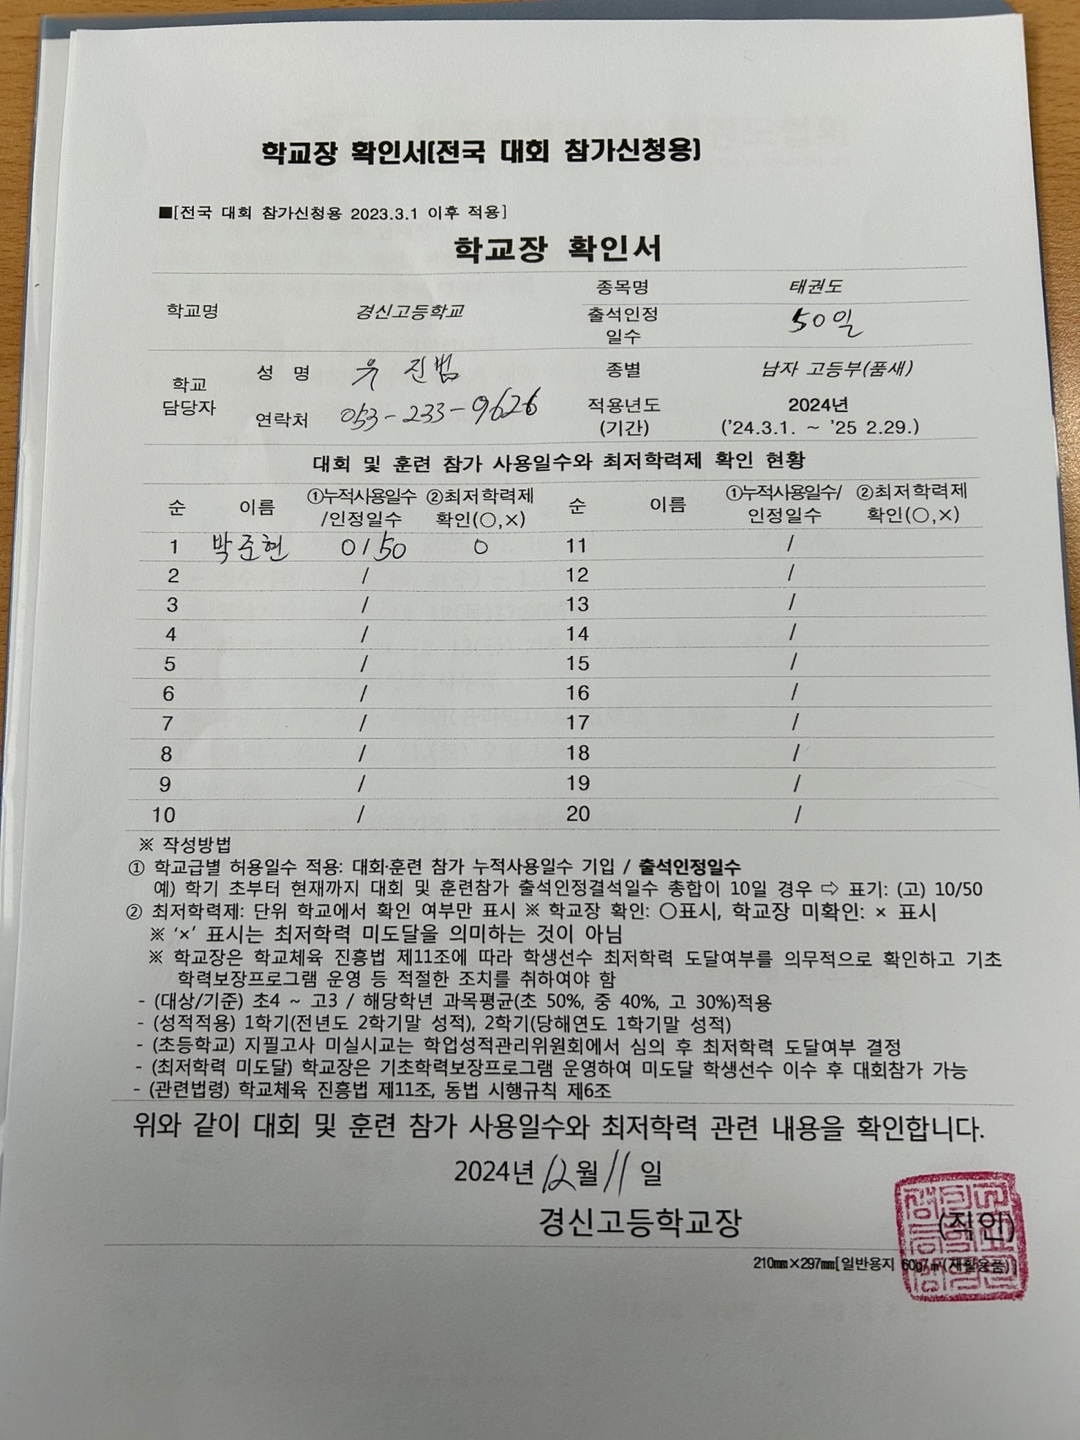 학교장 확인서(전국 대회 참가신청용)
■[전국 대회 참가신청용 2023.3.1 이후 적용]
학교장 확인서
학교명 경신고등학교 종목명 태권도
출석인정 일수 50일
학교 담당자 성 명 유 진범 종별 남자 고등부(품새)
연락처 053-233-9626 적용년도 (기간) 2024년 ('24.3.1. ~ '25 2.29.)
대회 및 훈련 참가 사용일수와 최저학력제 확인 현황
순 이름 ①누적사용일수 /인정일수 ②최저학력제 확인(○,×) 순 이름 ①누적사용일수/ 인정일수 ②최저학력제 확인(○,×)
1 박준현 0/50 ○ 11 /
2 / 12 /
3 / 13 /
4 / 14 /
5 / 15 /
6 / 16 /
7 / 17 /
8 / 18 /
9 / 19 /
10 / 20 /
※ 작성방법
① 학교급별 허용일수 적용: 대회·훈련 참가 누적사용일수 기입 / 출석인정일수
예) 학기 초부터 현재까지 대회 및 훈련참가 출석인정결석일수 총합이 10일 경우 ⇨ 표기: (고) 10/50
② 최저학력제: 단위 학교에서 확인 여부만 표시 ※ 학교장 확인: ○표시, 학교장 미확인: × 표시
※ '×' 표시는 최저학력 미도달을 의미하는 것이 아님
※ 학교장은 학교체육 진흥법 제11조에 따라 학생선수 최저학력 도달여부를 의무적으로 확인하고 기초
학력보장프로그램 운영 등 적절한 조치를 취하여야 함
- (대상/기준) 초4 ~ 고3 / 해당학년 과목평균(초 50%, 중 40%, 고 30%)적용
- (성적적용) 1학기(전년도 2학기말 성적), 2학기(당해연도 1학기말 성적)
- (초등학교) 지필고사 미실시교는 학업성적관리위원회에서 심의 후 최저학력 도달여부 결정
- (최저학력 미도달) 학교장은 기초학력보장프로그램 운영하여 미도달 학생선수 이수 후 대회참가 가능
- (관련법령) 학교체육 진흥법 제11조, 동법 시행규칙 제6조
위와 같이 대회 및 훈련 참가 사용일수와 최저학력 관련 내용을 확인합니다.
2024년 12월 11일
경신고등학교장 (직인)
210㎜×297㎜[일반용지 60g/㎡(재활용품)]